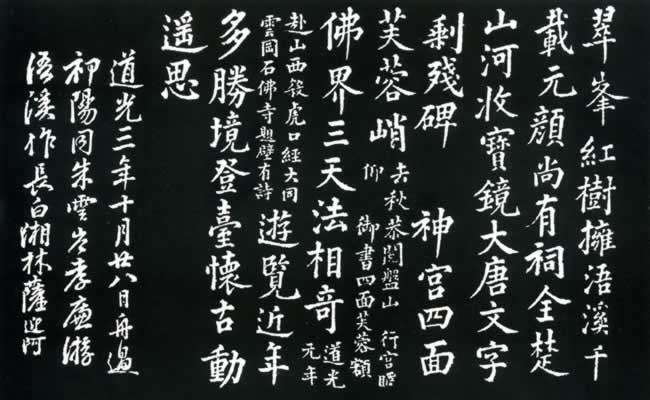 翠峯紅樹擁浯溪千
載元顏尚有祠全楚
山河收寶鏡大唐文字
剩殘碑 神宮四面
芙蓉峭
去秋恭閱盤山 行宮瞻
仰 御書四面芙蓉額
佛界三天法相奇
道光
元年
赴山西殺虎口經大同
雲岡石佛寺題壁有詩
遊覽近年
多勝境登臺懷古動
遥思
道光三年十月廿八日舟過
祁陽同朱雲岑孝廉游
浯溪作長白湘林薩迎阿